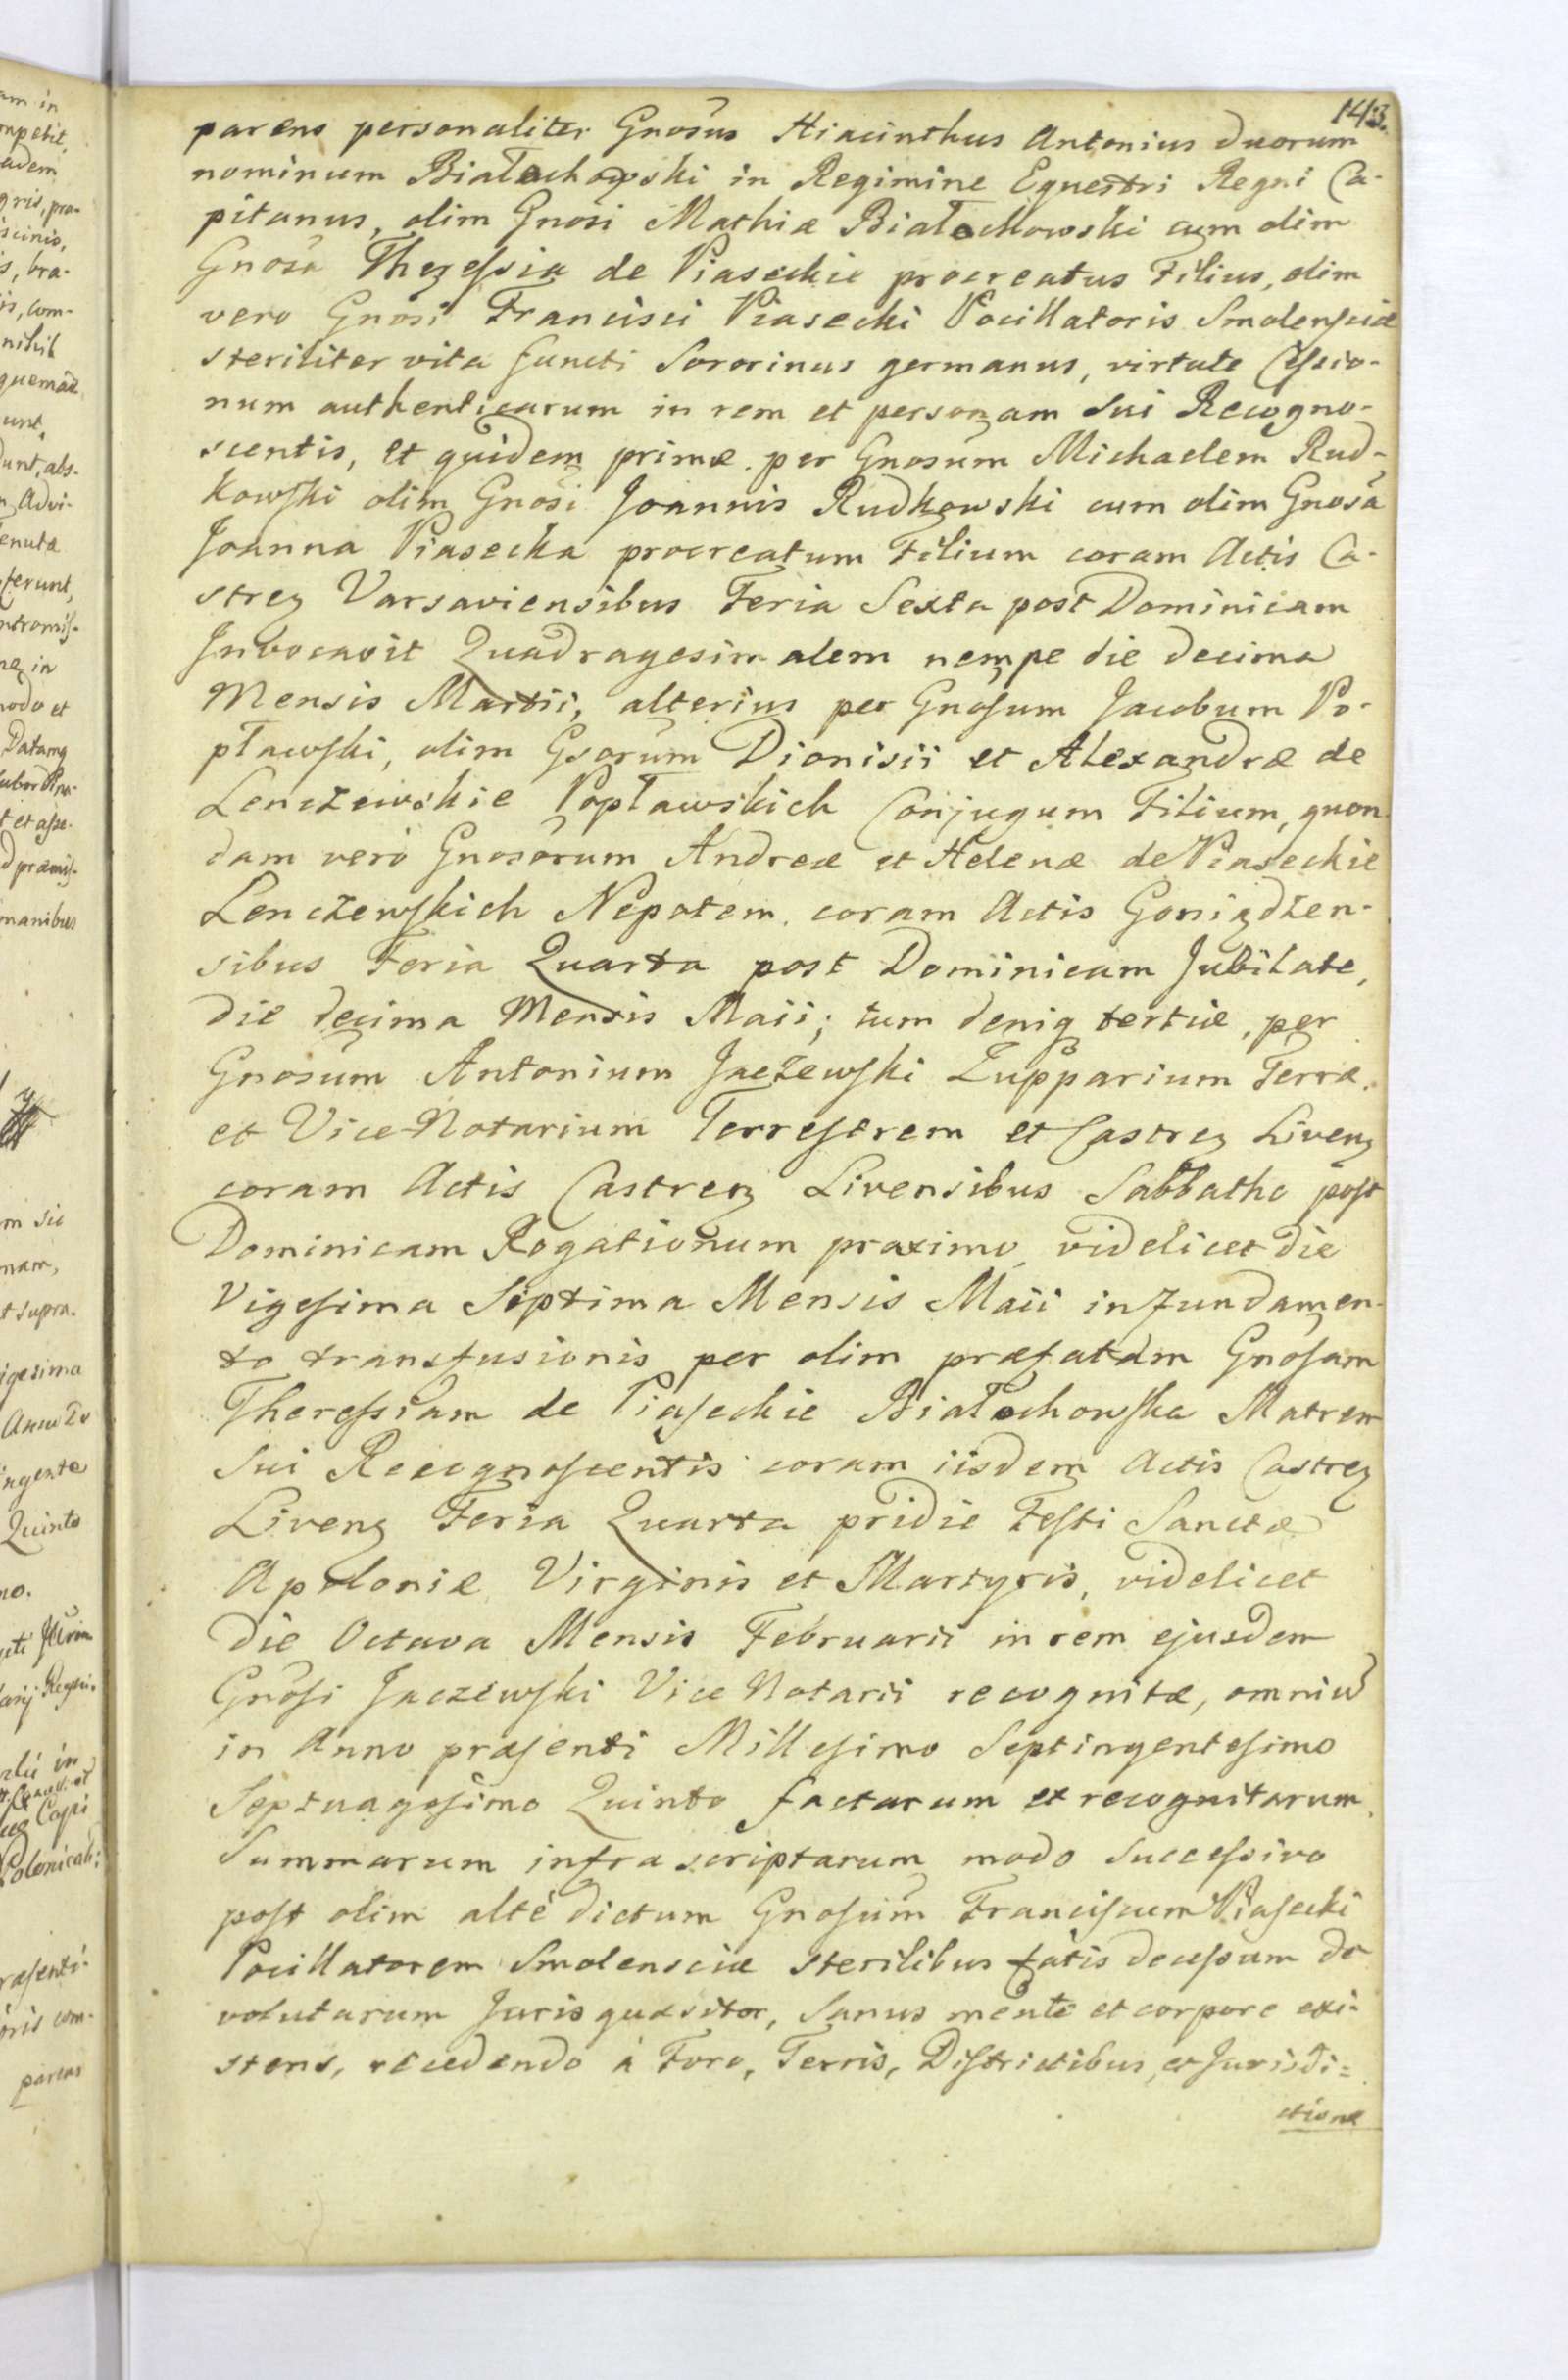 143.
parens personaliter Gnosus Hiacinthus Antonius duorum
nominum Białochowski in Regimine Equestri Regni Ca-
pitanus, olim Gnosi Mathiæ Białochowski cum olim
Gnosa Theressia de Piaseckie procreatus Filius, olim
vero Gnosi Francisci Piasecki Pocillatoris Smolensciæ
steriliter vita functi Sororinus germanus, virtute Cessio-
num authenticarum in rem et personam sui Recogno-
scentis, et quidem primæ per Gnosum Michaelem Rud-
kowski olim Gnosi Joannis Rudkowski cum olim Gnosa
Joanna Piasecka procreatum Filium coram Actis Ca-
stren Varsaviensibus Feria Sexta post Dominicam
Invocavit Quadragesimalem nempe die decima
Mensis Martii, alterius per Gnosum Jacobum Po-
pławski, olim Gsorum Dionisii et Alexandræ de
Lenczewskie Popławskich Conjugum Filium, quon
dam verò Gnosorum Andreæ et Helenæ de Piaseckie
Lenczewskich Nepotem coram Actis Goniądzen-
sibus Feria Quarta post Dominicam Jubilate,
die decima Mensis Maii; tum deniq tertiæ per
Gnosum Antonium Jaczewski Zupparium Terræ
et Vice-Notarium Terrestrem et Castren Liven
coram Actis Castren Livensibus Sabbatho post
Dominicam Rogationum proximo videlicet die
Vigesima Septima Mensis Maii in fundamen-
to transfusionis per olim præfatam Gnosam
Theressiam de Piaseckie Białochowska Matrem
sui Recognoscentis coram iisdem Actis Castren
Liven Feria Quarta pridie Festi Sanctæ
Apoloniæ Virginis et Martyris, videlicet
die Octava Mensis Februarii in rem ejusdem
Gnosi Jaczewski Vice Notarii recognitæ, omniu
in Anno præsenti Millesimo Septingentesimo
Septuagesimo Quinto factarum et recognitarum
Summarum infrascriptarum modo successivo
post olim altè dictum Gnosum Franciscum Piasecki
Pocillatorem Smolensciæ sterilibus fatis decessum de
volutarum Juris quæsitor, Sanus mente et corpore exi-
stens, recedendo à Foro, Terris, Districtibus, et Jurisdi=
ctione